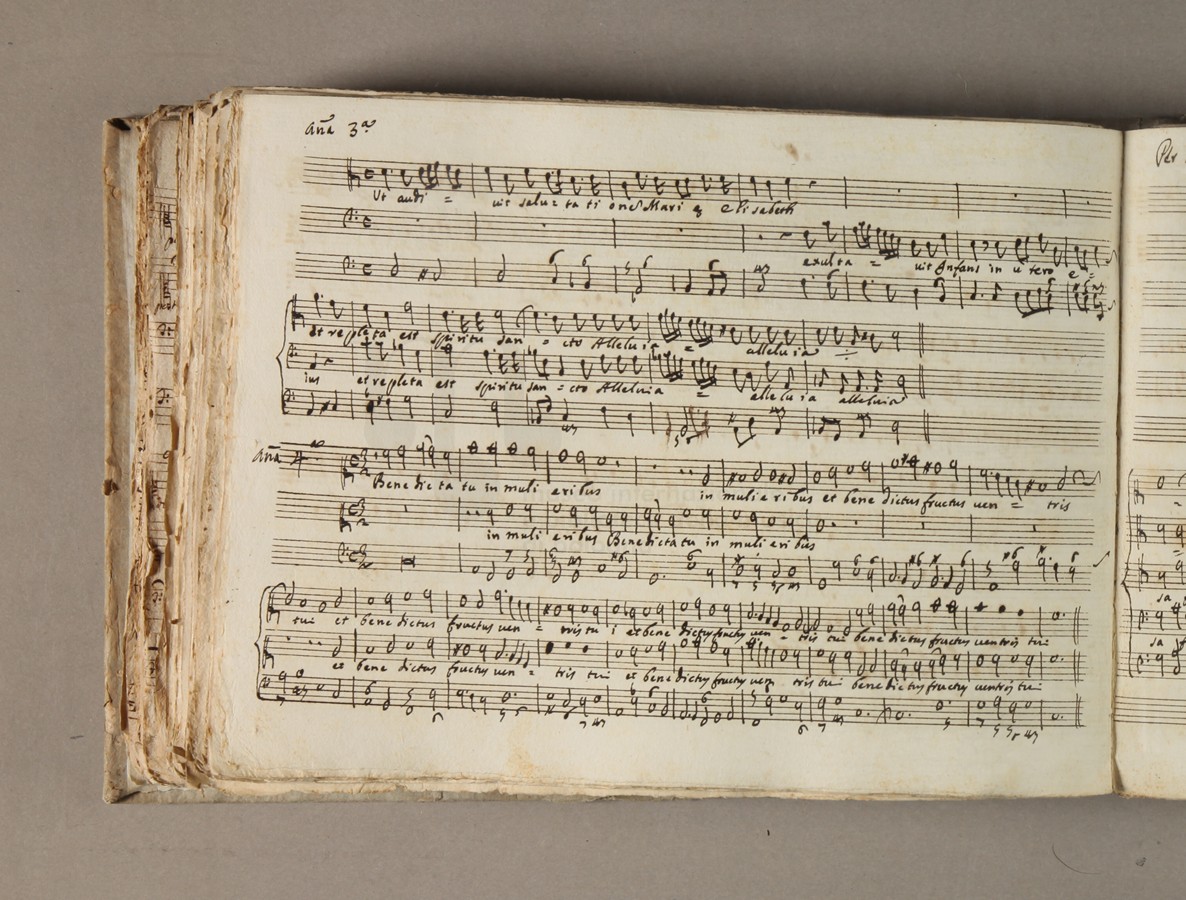 Aña 3ª
Ut audi = uit saluta ti one Mari ę Elisabeth
exulta = uit Infans in utero e =
et repleta est spiritu San = cto Alleluia = alleluia
ius et repleta est spiritu san = cto Alleluia = alleluia alleluia
Aña 4ª
Bene dic ta tu in muli eribus in mulie ribus et bene dictus fructus uen = tris
in muli eribus Benedicta tu in muli eribus
tui et bene dictus fructus uen = tris tu i et bene dictus fructus uen = tris tui bene dictus fructus uentris tui
et bene dictus fructus uen = tris tui et bene dictus fructus uen tris tui bene dictus fructus uentris tui
Per
sa
sa